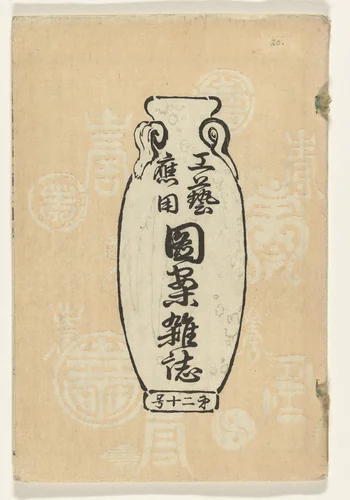 工藝
應用
圖案雜誌
第二十号
20.